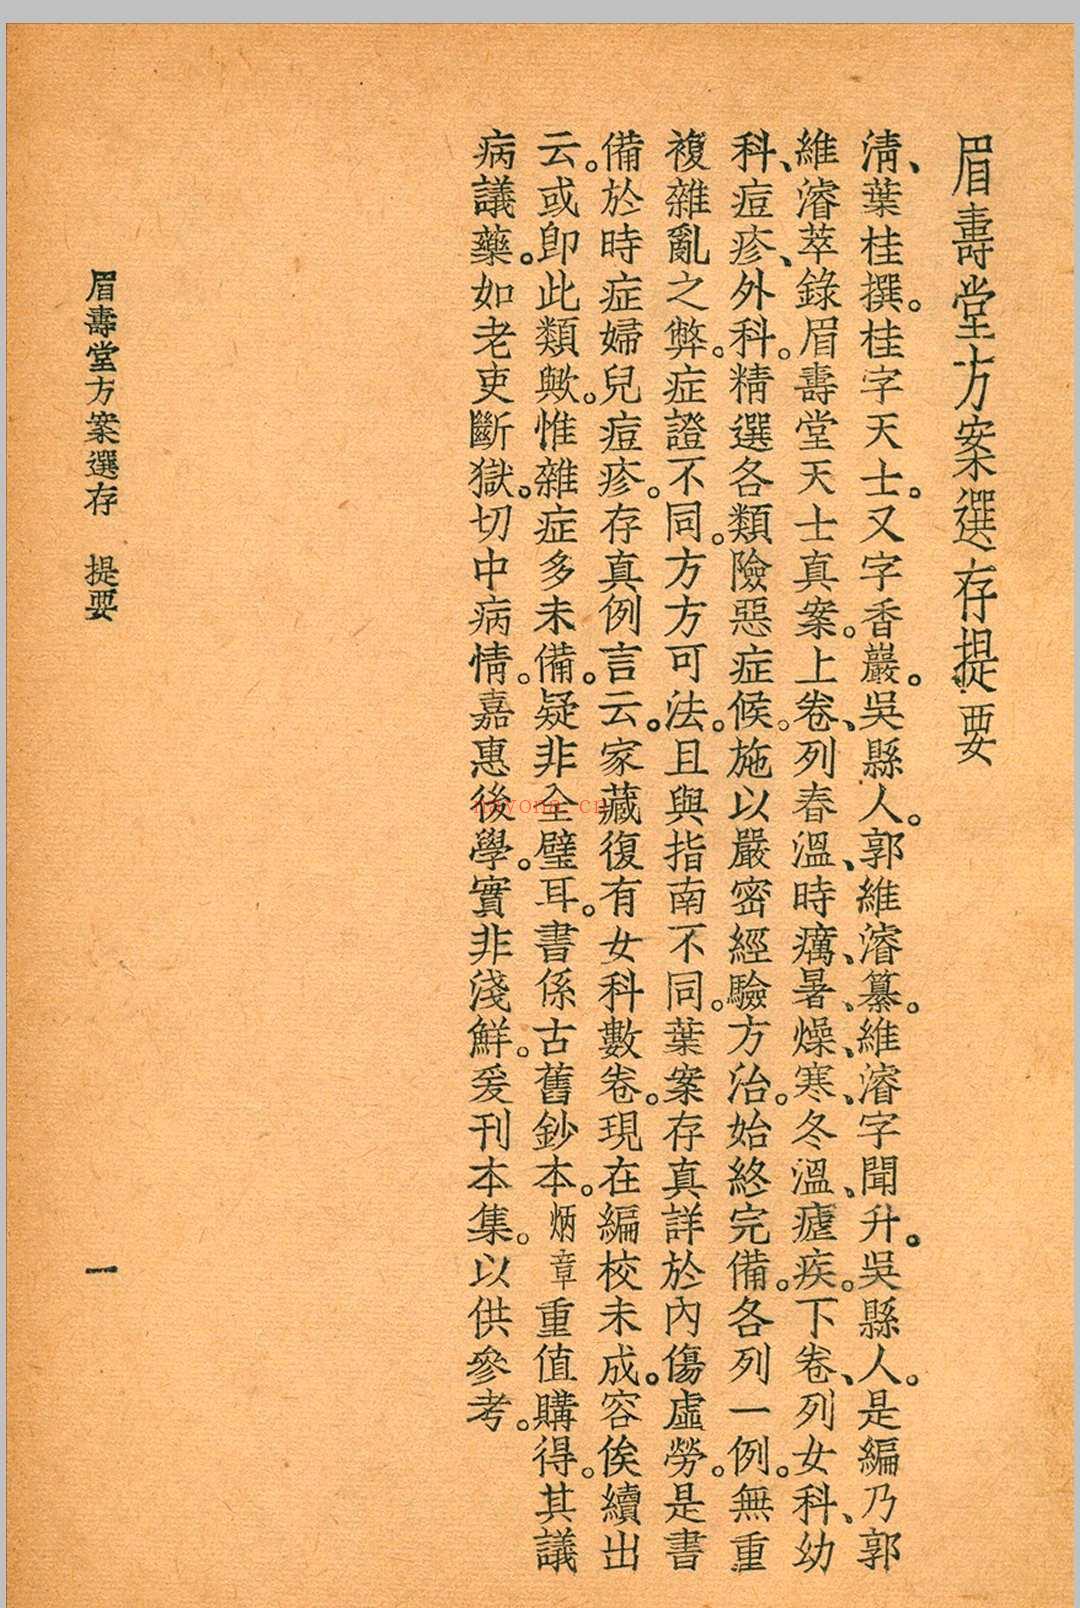 眉壽堂方案選存提要
淸、葉桂撰。桂字天士。又字香巖。吳縣人。郭維濬纂。維濬字聞升。吳縣人。是編乃郭
維濬萃錄眉壽堂天士真案。上卷、列春溫、時癘、暑、燥、寒、冬溫、瘧疾。下卷、列女科、幼
科、痘疹、外科。精選各類險惡症候。施以嚴密經驗方治。始終完備。各列一例。無重
複雜亂之弊。症證不同。方方可法。且與指南不同。葉案存真詳於內傷虛勞。是書
備於時症婦兒痘疹。存真例言云。家藏復有女科數卷。現在編校未成。容俟續出
云。或卽此類歟。惟雜症多未備。疑非全璧耳。書係古舊鈔本。炳章重值購得。其議
病議藥。如老吏斷獄。切中病情。嘉惠後學。實非淺鮮。爰刊本集。以供參考。
眉壽堂方案選存　提要
一
nayona.cn